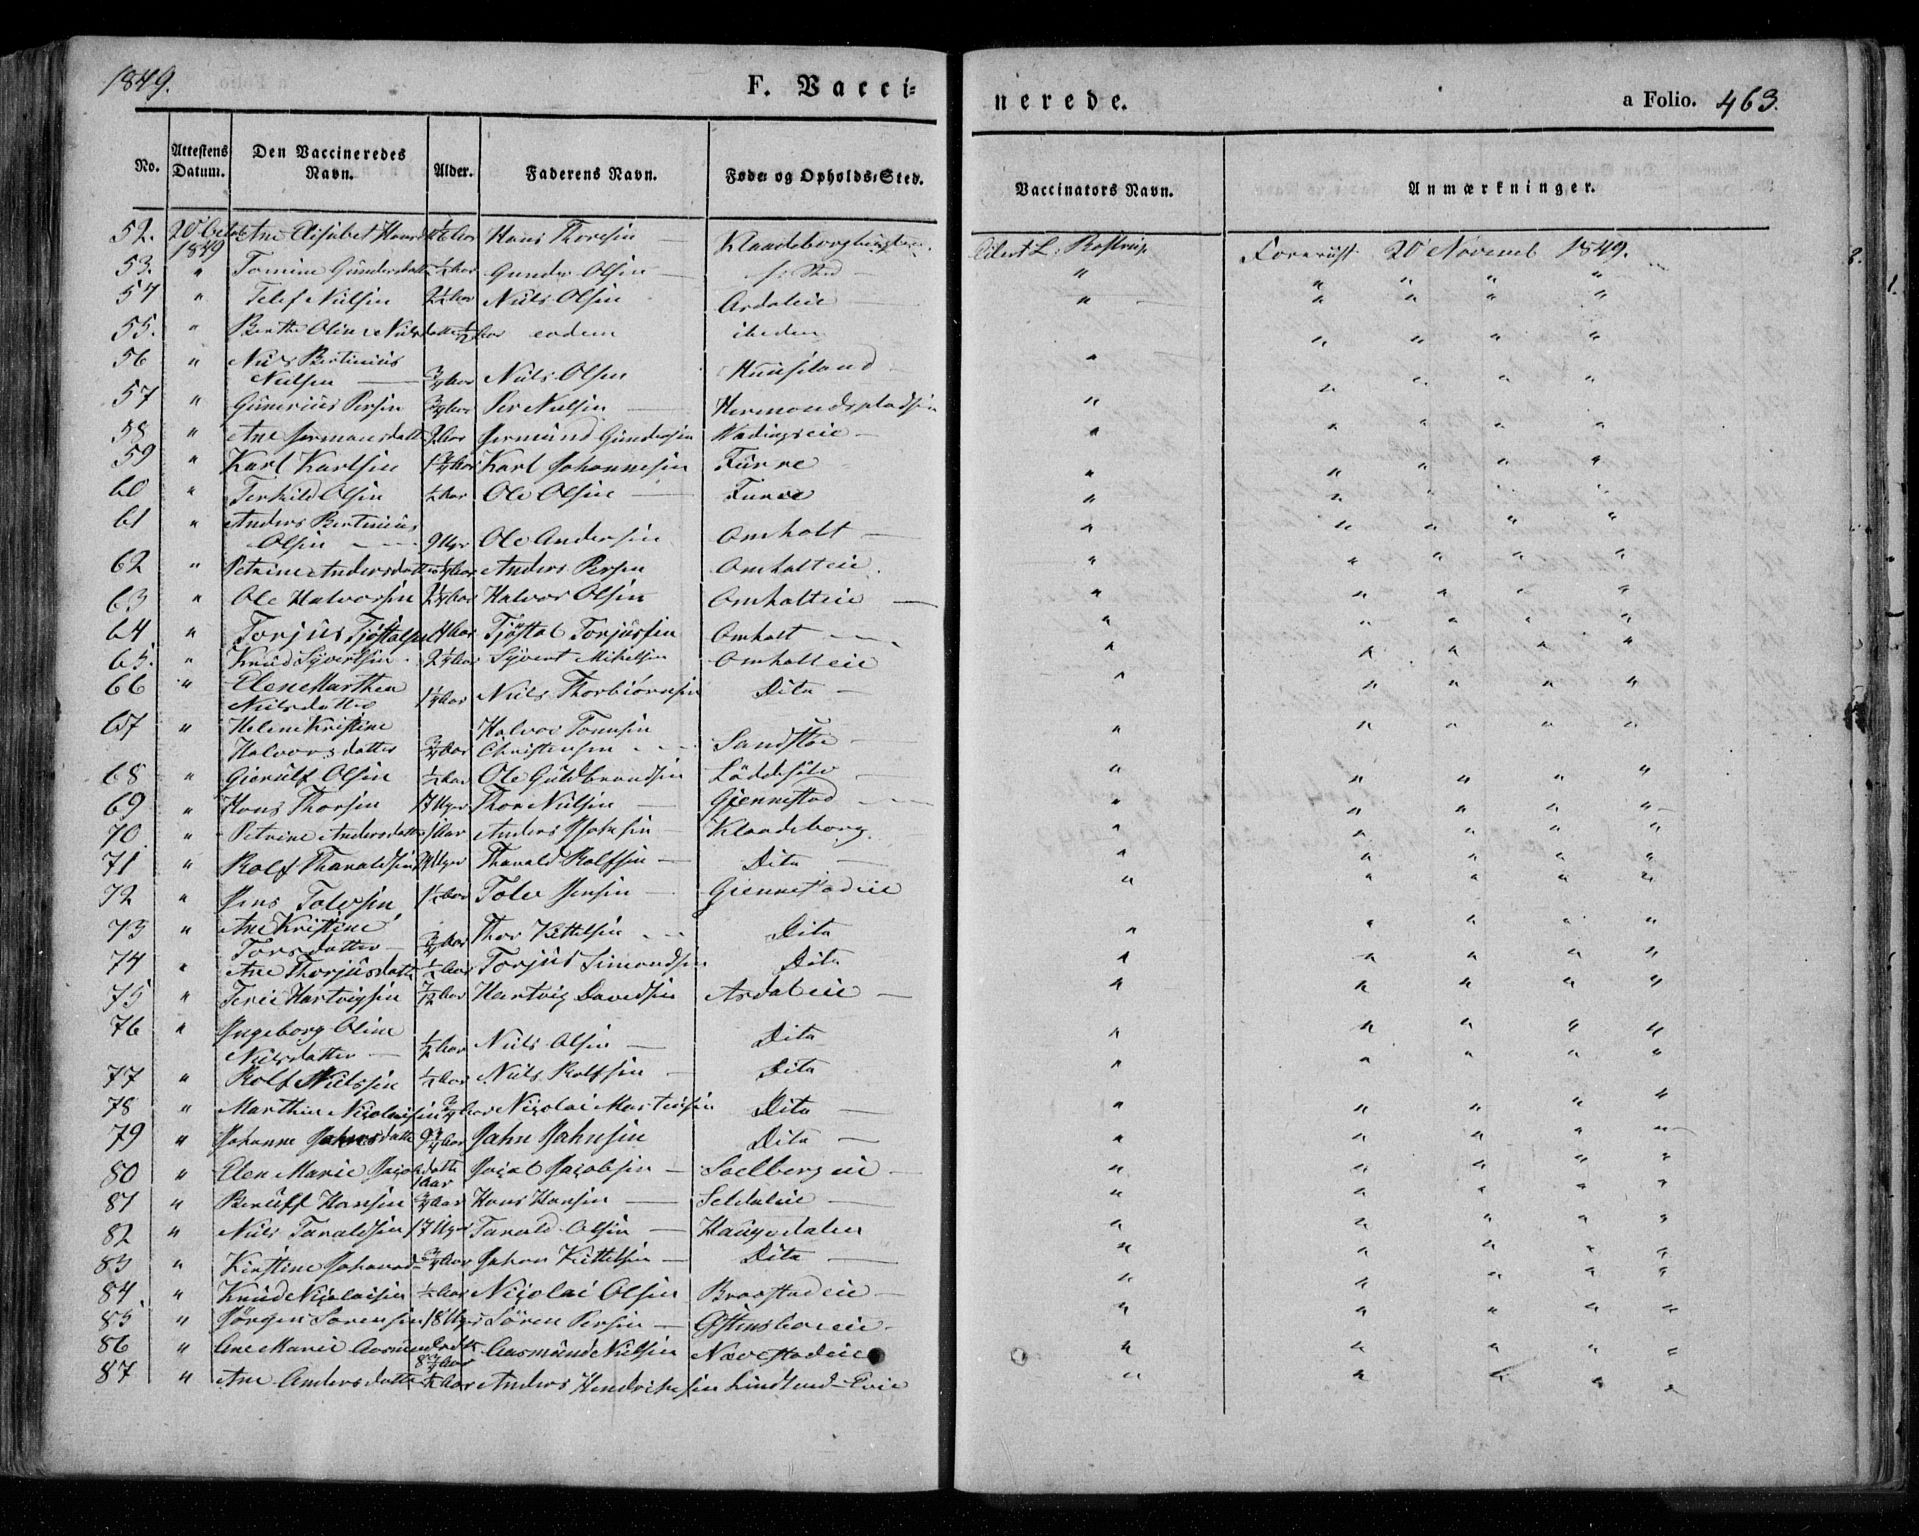 1849.
F. Vacci-
nerede.
a Folio. 463.
No. Attestens Datum. Den Vaccineredes Navn. Alder. Faderens Navn. Føde og Opholds-Sted. Vaccinators Navn. Anmærkninger.
52. 1849 Ane Elisabet Hans Thoresen Rostrup. Forevist 20 Novemb 1849.
53. " Tomine Gundersdatt ½ Aar Gunder Olsen — " " " " "
54 " Telef Nielsen 2½ Aar Niels Olsen Ardaleie — " " " " "
55. " Berthe Oline Nielsdatter ½ Aar eodem ibedem " " " "
56 " Niels Bertinius
Nielsen — ¾ Aar Niels Olsen Huuseland — " " " " "
57 " Gunerius Persen ¾ Aar Per Nielsen — Hermondspladsen " " " " "
58 " Ane Jermunsdatt 2 Aar Jermund Gundersen — " " " " "
59 " Karl Karlsen 1¾ Aar Karl Johannesen Furre " " " " "
60 " Terkild Olsen ½ Aar Ole Olsen — Furre " " " " "
61 " Anders Bertinius
Olsen — 9 Uger Ole Andersen Omholt — " " " " "
62 " Petrine Andersdatter Aar Anders Persen Omholteie. " " " " "
63 " Ole Halvorsen 2¼ Aar Halvor Olsen Omholteie — " " " " "
64 " Torjus Tjøstolsen 4 Aar Tjøstol Torjussen Omholt — " " " " "
65. " Knud Syvertsen 2¼ Aar Syvert Mikelsen Omholteie " " " " "
66 " Elen Marthea
Nielsdatter 1¼ Aar Niels Thorbiørnsen Dito — " " " " "
67 " Helene Kristine Halvor Tomesen
Halvorsdatter ¾ Aar Christensen — Sandstøe — " " " " "
68 " Gierulf Olsen ½ Aar Ole Guldbrandsen Løddesøle — " " " " "
69 " Hans Thorsen 17 Uger Thor Nielsen — Gjennestad — " " " " "
70. " Petrine Andersdatter 1 Aar Anders Johnsen — Klaadeborg. " " " " "
71 " Rolf Tharaldsen Uger Tharald Rolfsen — Dito — " " " " "
72 " Jens Tolesen 1½ Aar Tolev Jensen — Giennestadeie " " " " "
73 " Ane Kristine
Torsdatter — ¾ Aar Thor Kittelsen — Dito " " " " "
74 " Ane Thorjusdatt ½ Aar Torjus Simondsen Dito " " " " "
75 " Terie Hartvigsen 7/12 Aar Hartvig Davidsen Ardaleie — " " " " "
76 " Ingeborg Oline
Nielsdatter — ½ Aar Niels Olsen — Dito " " " " "
77 " Rolf Nielssen ½ Aar Niels Rolfsen — Dito " " " " "
78 " Marthin Nicolaisen ¾ Aar Nicolai Martensen Dito — " " " "
79 " Johanne Jahnsdatte 9¾ Aar Jahn Jahnsen Dito — " " " " "
80 " Elen Marie Jacobdatte 1 Aar Jacob Jacobsen — Solbergeie — " " " " "
81 " Berulf Hansen ¾ Aar Hans Hansen — Seldaleie — " " " " "
82 " Niels Taraldsen 17 Uger Tarald Olsen — Haugedalen " " " " "
83 " Kirstine Johansd ¾ Aar Johan Kittelsen — Dito — " " " " "
84 " Knud Nicolaisen ½ Aar Nicolai Olsen Braastadeie — " " " " "
85 " Jørgen Sørensen 18 Uger Søren Persen — Østensboeeie — " " " " "
86 " Ane Marie Aasmundsdatte 8¾ Aar Aasmund Nielsen Nævestadeie " " " " "
87 " Ane Andersdatte ½ Aar Anders Hendriksen Lindland-Evie " " " " "